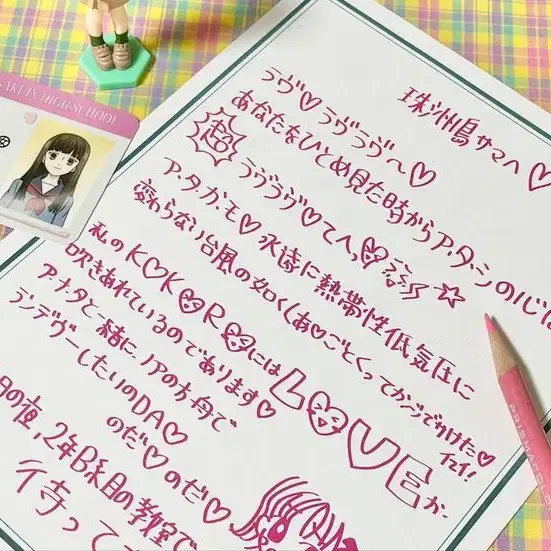 AKUEN HIGH-SCHOOL
珠洲島サマへ♡
ラヴ♡ラヴラヴ〜♡
あなたをひとめ見た時からア・タ・シの心は
超ラヴラヴ♡てへ♡
ア・タ・カ・モ♡永遠に熱帯性低気圧に
変わらない台風の如く(あ♡ごとくってかんじでかけた♡イエイ!
私のK♡K♡R♡にはL♡VEが
吹きあれているのであります♡
アナタと一緒にノアの方舟で
ランデヴーしたいのDA♡
のだ♡のだ♡
の夜,2年B組の教室で
待って